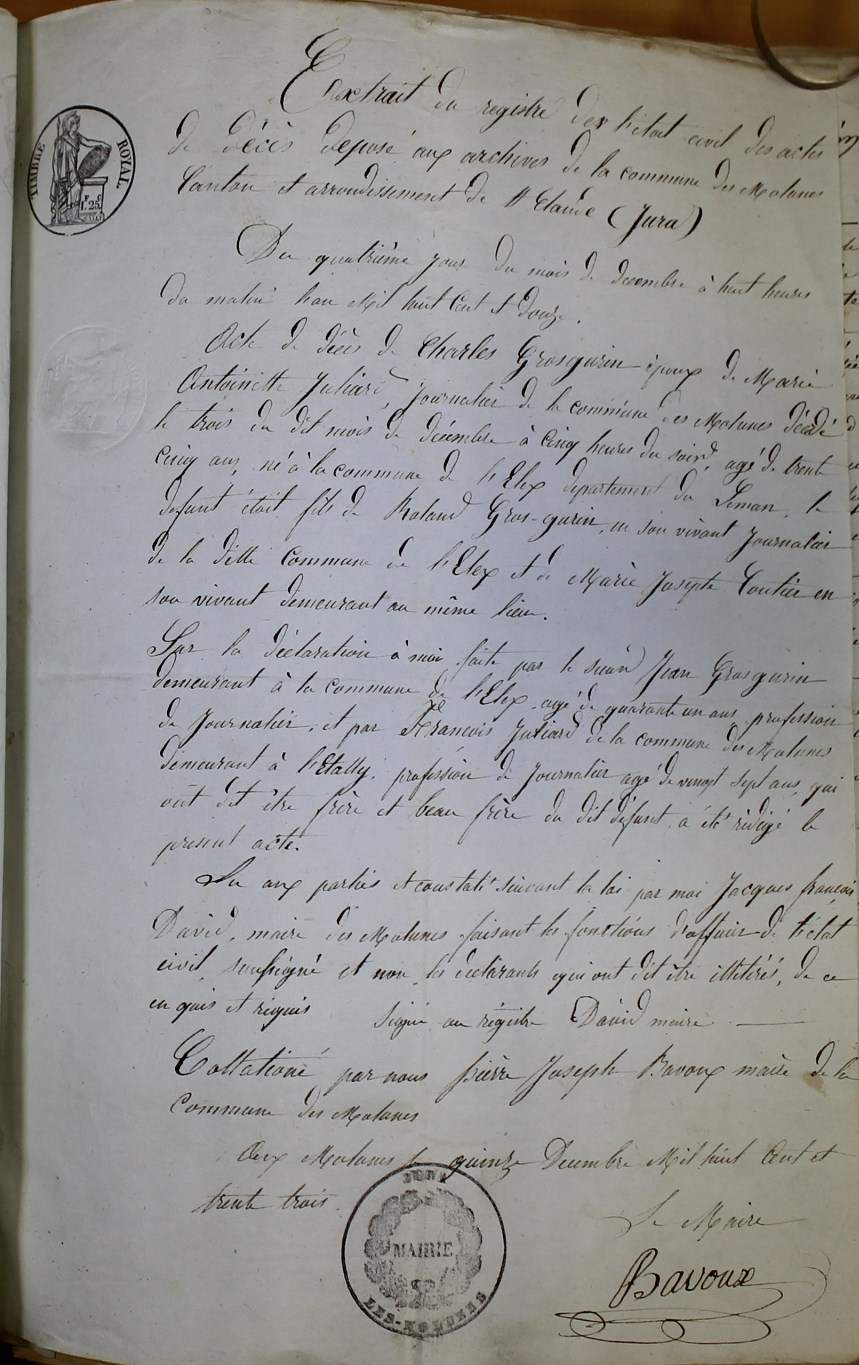 TIMBRE ROYAL.
1.F 25.C
Extrait du registre des l'état civil des actes
de décès déposé aux archives de la commune des Molunes
Canton et arrondissement de St Claude (Jura)
Du quatrième jour du mois de décembre à huit heures
du matin l'an Mil huit Cent et Douze.
Acte de décès de Charles Grosgurin époux de Marie
Antoinette Juliard, Journalier de la commune des Molunes décédé
le trois du dit mois de décembre à Cinq heures du soird, agé de trente
cinq ans, né à la commune de lElex département du Léman, le
défunt était fils de Roland Gros-gurin, en son vivant Journalier
de la ditte Commune de lElex et de Marie Joseph en
son vivant demeurant au même lieu.
Sur la déclaration à moi faite par le Jean Grosgurin
demeurant à la commune de lElex, agé de quarante un ans, profession
de Journalier, et par François Juliard de la commune des Molunes
demeurant à profession de Journalier agé de vingt sept ans, qui
ont dit être frère et beau frère du dit défunt, a été rédigé le
présent acte.
Lu aux parties et constaté suivant la loi par moi Jacques françois
David, maire des Molunes faisant les fonctions d'officier de l'état
civil, soussigné et non les déclarants qui ont dit être illétérés, de ce
enquis et requis Signé au régistre David maire
Collationé par nous pierre Joseph Bavoux maire de la
Commune des Molunes
Aux Molunes le quinze Decembre Mil huit Cent et
trente trois.
Le Maire
Bavoux
JURA
MAIRIE
LES-MOLUNES